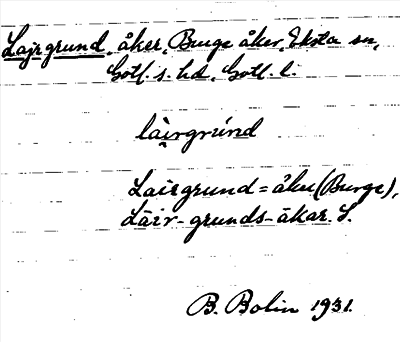 Lajrgrund, åker, Burge åker, Eksta sn,
Gotl. s. hd, Gotl. l.
làirgrúnd
Lairgrund = åker (Burge),
Läir-grunds-åkar. S.
B. Bolin 1931.